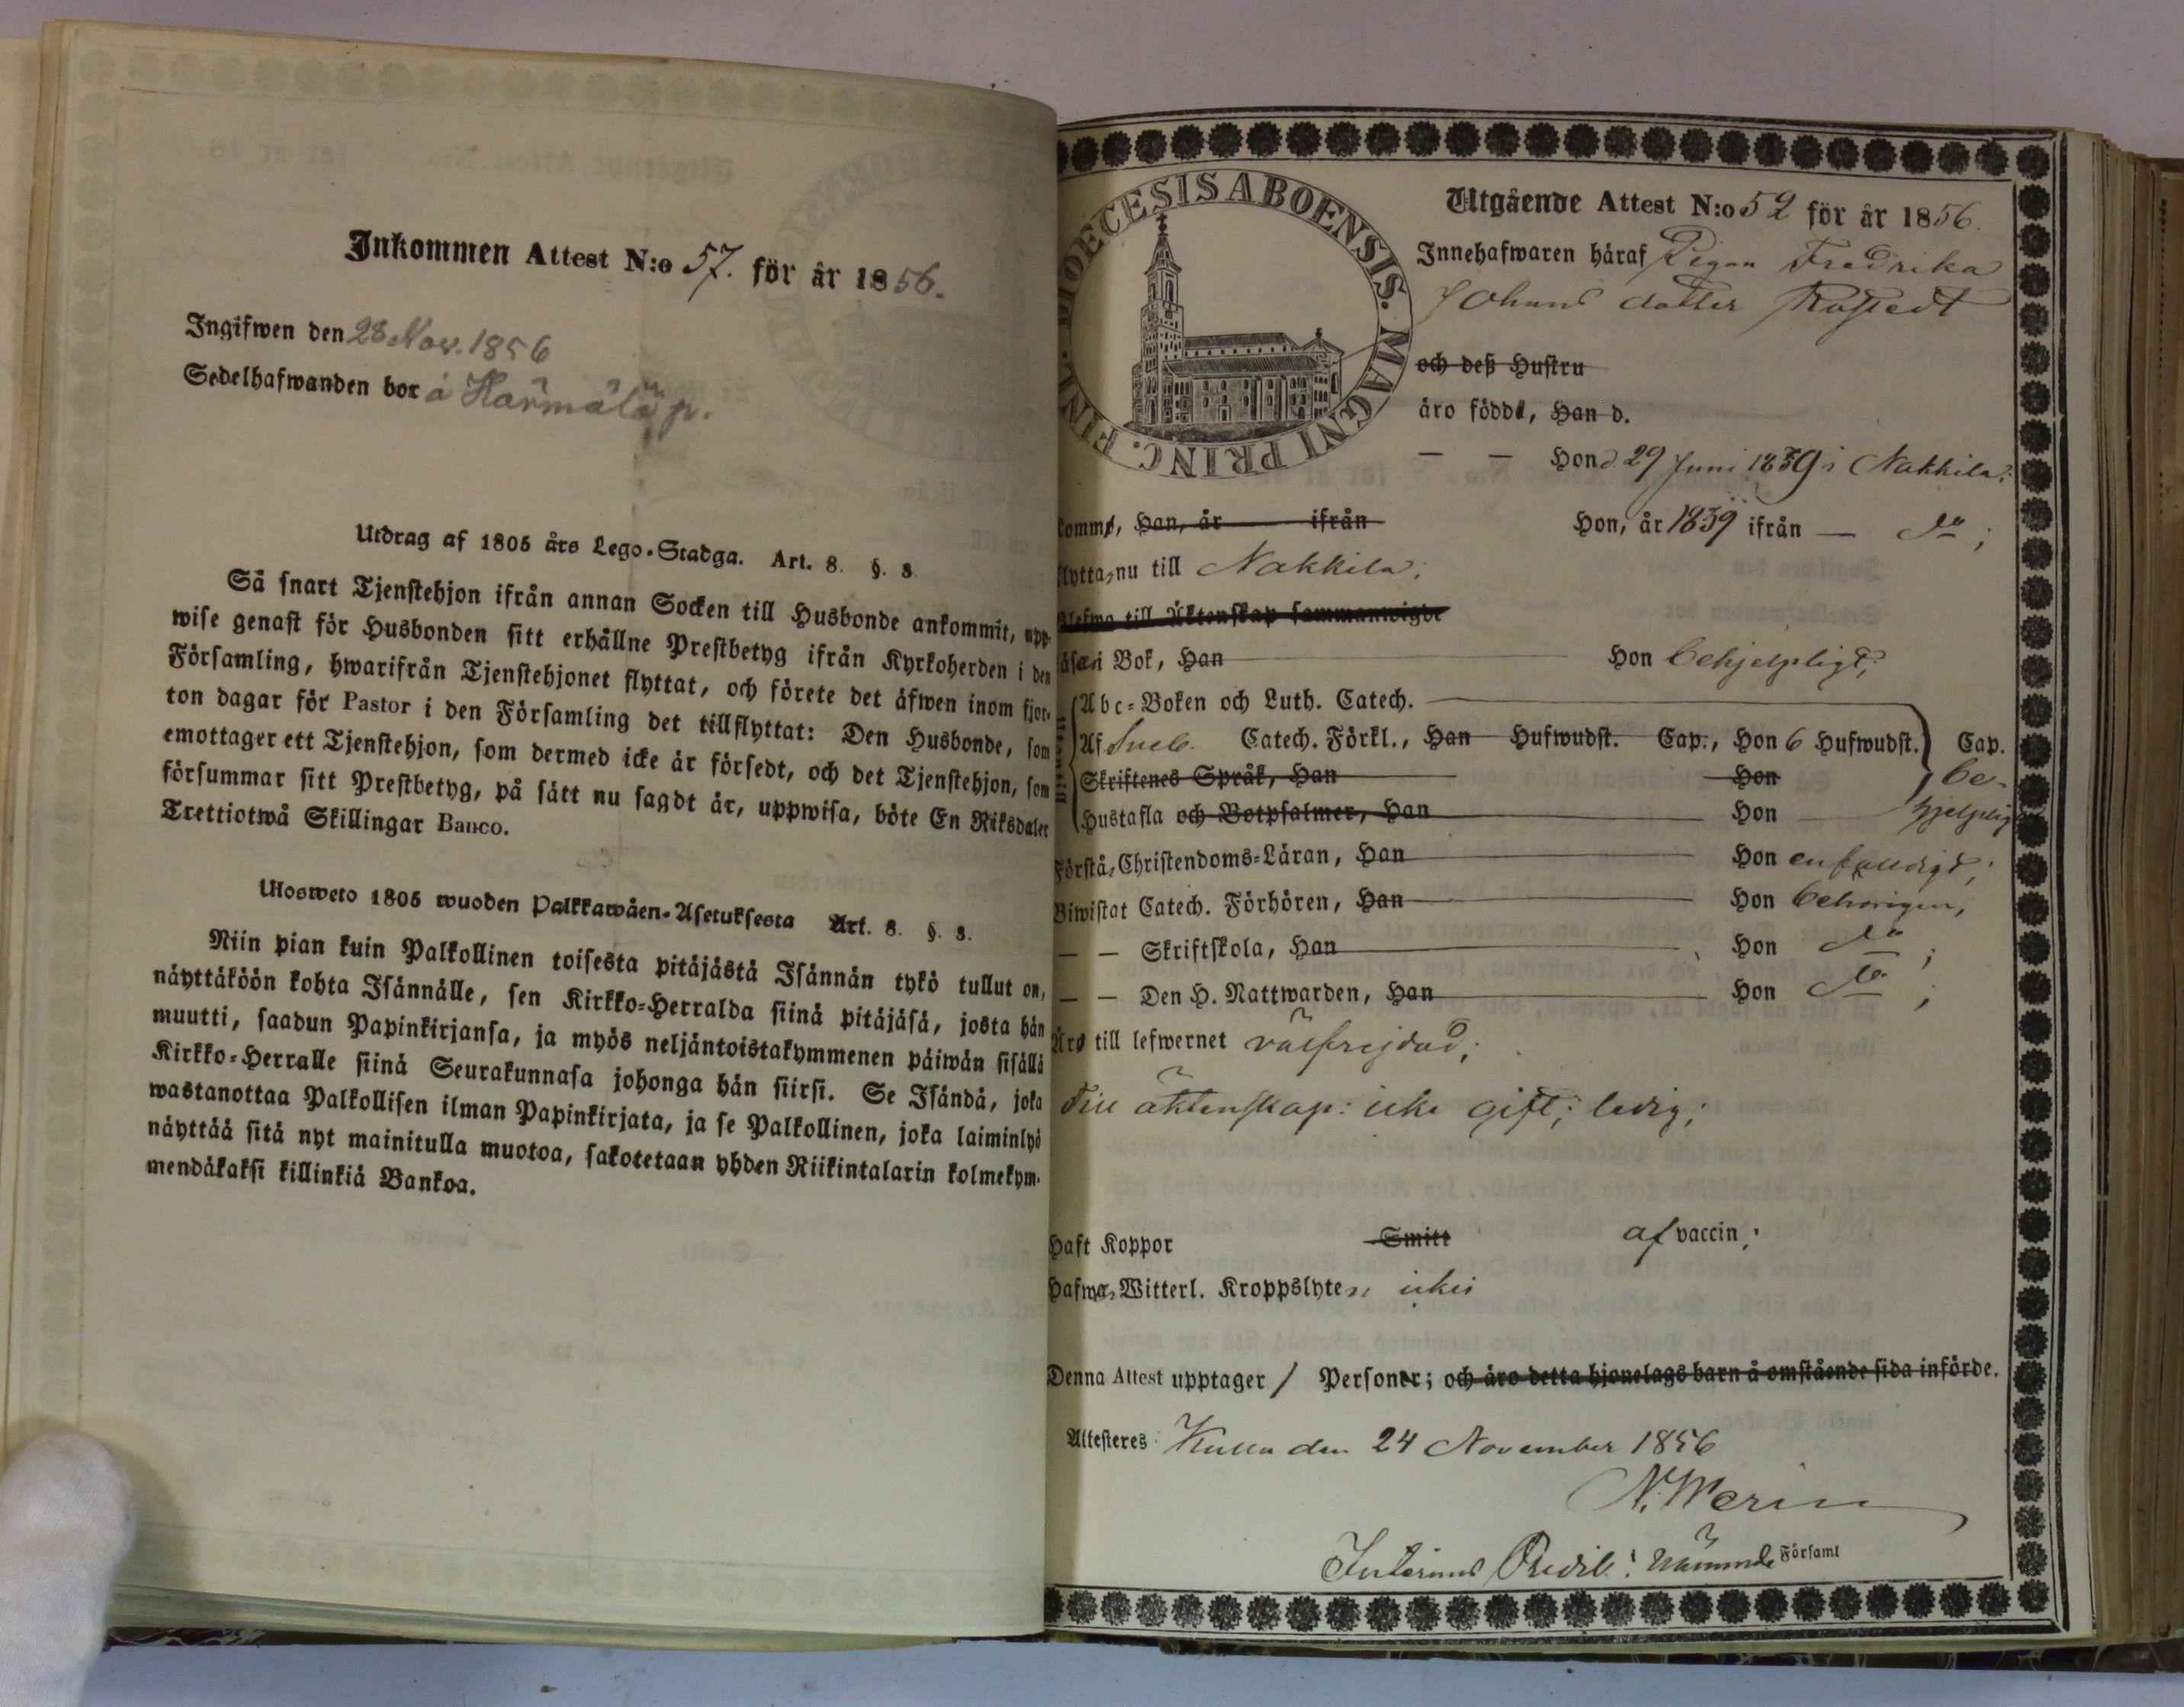 Inkommen Attest N:o 57. för år 1856.
Ingifwen den 28 Nov. 1856
Sedelhafwanden bor å Härmälä p.
Utdrag af 1805 års Lego-Stadga. Art. 8. §. 8.
Så snart Tjenstehjon ifrån annan Socken till Husbonde ankommit, upp-
wise genast för Husbonden sitt erhållne Prestbetyg ifrån Kyrkoherden i den
Församling, hwarifrån Tjenstehjonet flyttat, och förete det äfwen inom fjor-
ton dagar för Pastor i den Församling det tillflyttat: Den Husbonde, som
emottager ett Tjenstehjon, som dermed icke är försedt, och det Tjenstehjon, som
försummar sitt Prestbetyg, på sätt nu sagdt är, uppwisa, böte En Riksdaler
Trettiotwå Skillingar Banco.
Ulosweto 1805 wuoden Palkkawäen-Asetuksesta Art. 8. §. 8.
Niin pian kuin Palkollinen toisesta pitäjästä Isännän tykö tullut on,
näyttäköön kohta Isännälle, sen Kirkko-Herralda siinä pitäjäsä, josta hän
muutti, saadun Papinkirjansa, ja myös neljäntoistakymmenen päiwän sisällä
Kirkko-Herralle siinä Seurakunnasa johonga hän siirsi. Se Isändä, joka
wastanottaa Palkollisen ilman Papinkirjata, ja se Palkollinen, joka laiminlyö
näyttää sitä nyt mainitulla muotoa, sakotetaan yhden Riikintalarin kolmekym-
mendäkaksi killinkiä Bankoa.
DIOECESIS ABOENSIS. MAGNI PRINC. FINL.
Utgående Attest N:o 52 för år 1856.
Innehafwaren häraf Pigan Fredrika
Johans dotter
och deß Hustru
äro födde, Han d.
— — Hon d. 29 Juni 1839 i Nakkila;
komme, Han, år ifrån Hon, år 1839 ifrån — do;
flytta, nu till Nakkila;
Blefwo till Äktenskap sammanwigde
läsa i Bok, Han Hon behjelpligt;
Abc-Boken och Luth. Catech.
Af Sveb. Catech. Förkl., Han Hufwudst. Cap., Hon 6 Hufwudst. Cap.
Skriftenes Språk, Han Hon be-
Hustafla och Botpsalmer, Han Hon hjelplig
Förstå, Christendoms-Läran, Han Hon enfalldigt;
Biwistat Catech. Förhören, Han Hon behörigen,
— — Skriftskola, Han Hon do;
— — Den H. Nattwarden, Han Hon do;
Äro till lefwernet välfrejdad;
Till äktenskap: icke gift; ledig;
Haft Koppor Smitt af vaccin;
Hafwa, Witterl. Kroppslyten icke
Denna Attest upptager 1 Personer; och äro detta hjonelags barn å omstående sida införde.
Attesteres Kulla den 24 November 1856
Interims Predik. i nämnde Församl